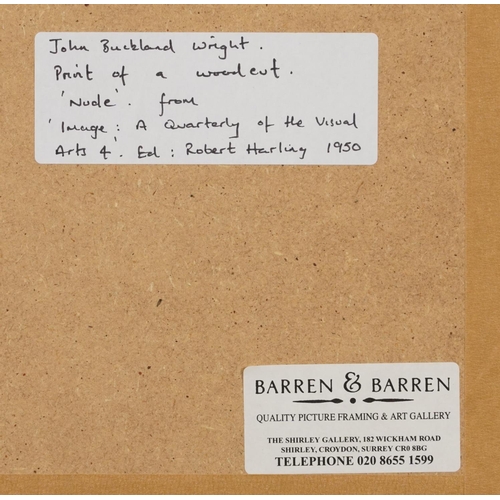 John Buckland Wright.
Print of a woodcut.
'Nude'. from
'Image: A Quarterly of the Visual
Arts 4'. Ed: Robert Harling 1950
BARREN & BARREN
QUALITY PICTURE FRAMING & ART GALLERY
THE SHIRLEY GALLERY, 182 WICKHAM ROAD
SHIRLEY, CROYDON, SURREY CR0 8BG
TELEPHONE 020 8655 1599